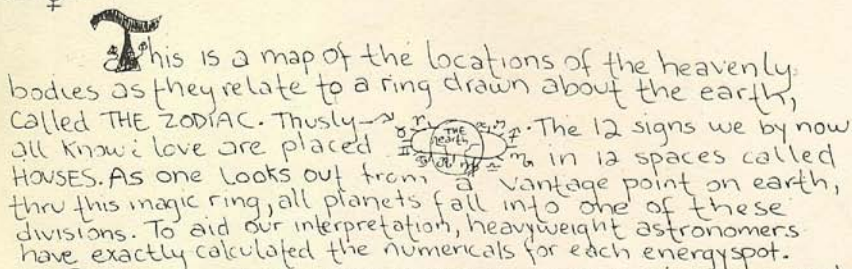 This is a map of the locations of the heavenly
bodies as they relate to a ring drawn about the earth,
called THE ZODIAC. Thusly→ THE hearth . The 12 signs we by now
all know & love are placed in 12 spaces called
HOUSES. As one looks out from a vantage point on earth,
thru this magic ring, all planets fall into one of these
divisions. To aid our interpretation, heavyweight astronomers
have exactly calculated the numericals for each energyspot.